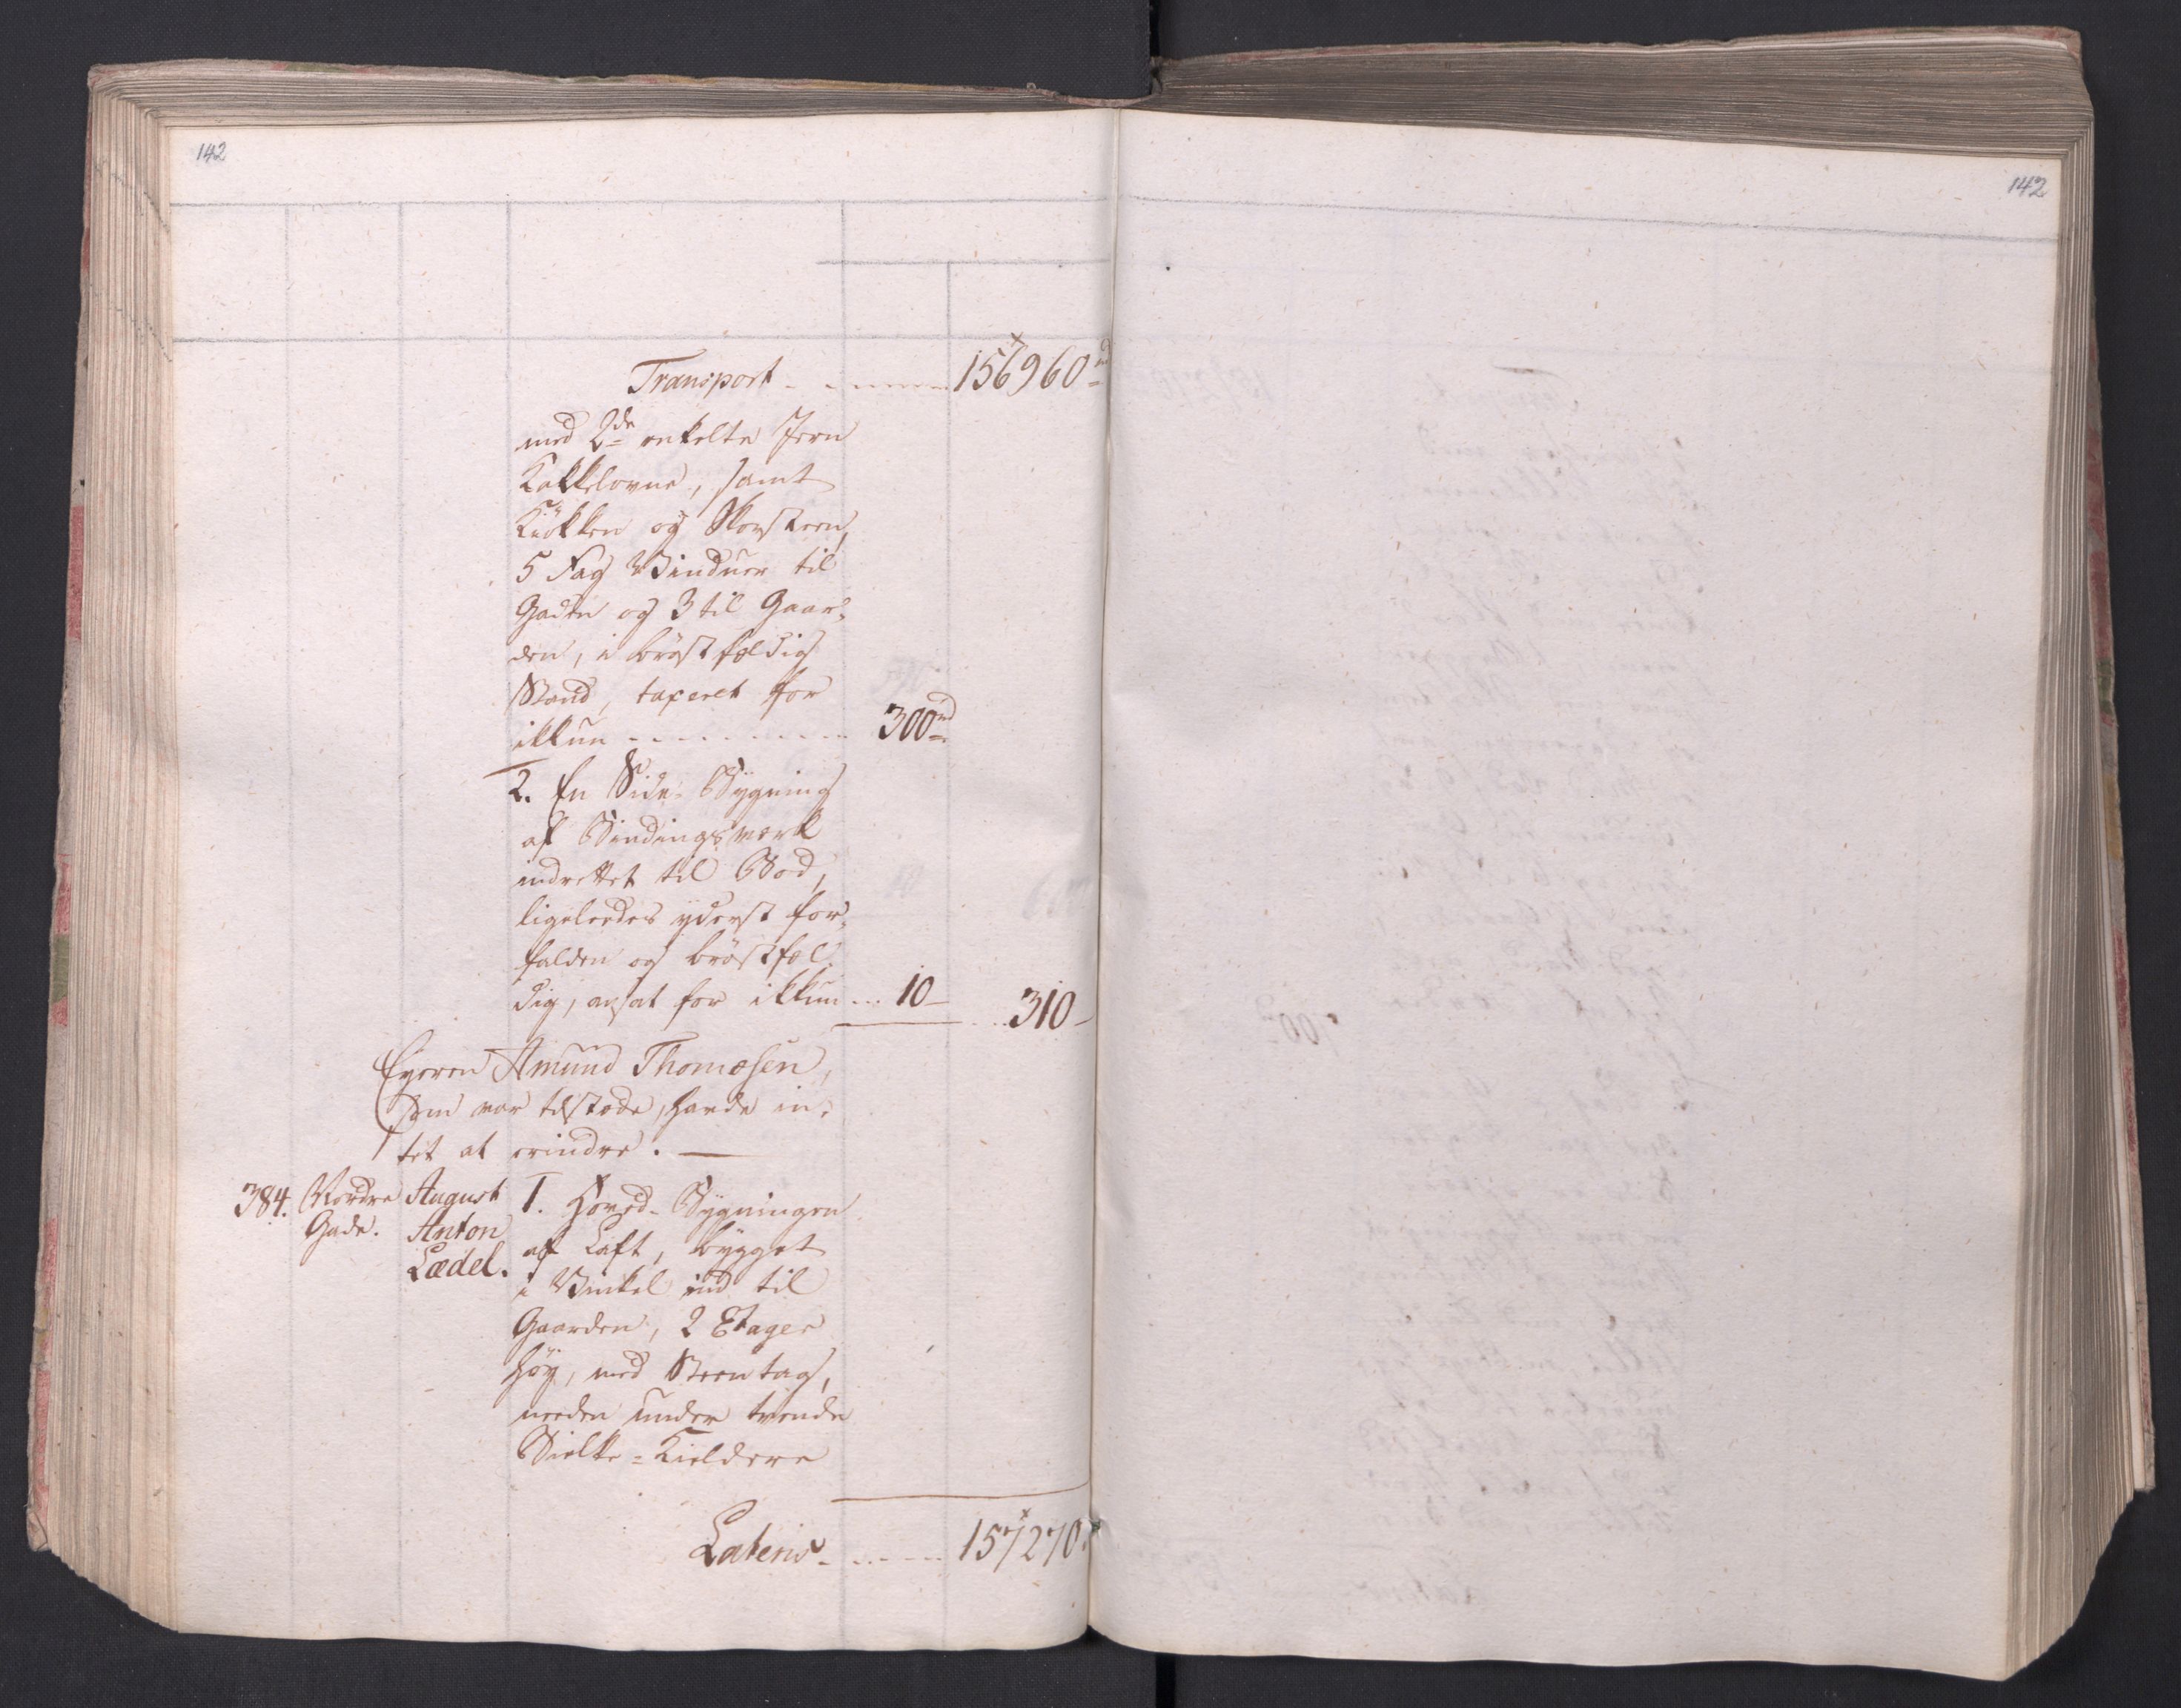 142
142
Transport - - - - - 156960 rd
med 2de enkelte Jern
Kakkelovne, samt
Kiökken og Skorsteen,
5 Fag Vinduer til
Gaden og 3 til Gaar-
den, i bröstfældig
Stand, taxeret for
ikkun - - - - - - - - 300 rd
2. En Side-Bygning
af Bindingsværk
indrettet til Bod,
ligeledes yderst for-
falden og bröstfæl-
dig, ansat for ikkun ... 10 - ... 310 -
Eyeren Amund Thomesen,
som var tilstæde, havde in-
tet at erindre. —
384. Nordre Gade. August Anton Lædel. 1. Hoved-Bygningen
af Laft, bygget
i Vinkel ind til
Gaarden, 2 Etager
höy, med Steentag,
neden under trende
Bielke-Kieldere
Lateris - - - - - 157270